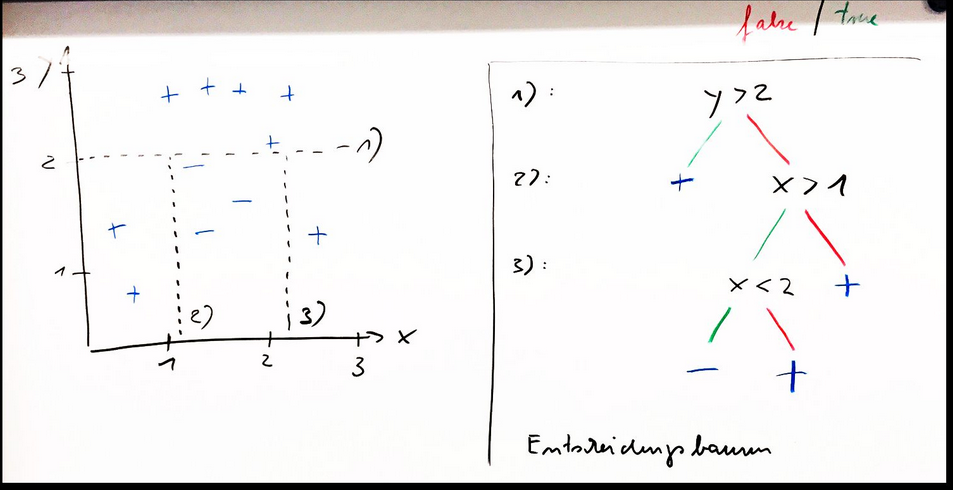 false / true
3 y
+ + + +
+
2 - 1)
-
-
+ - +
1
+
2) 3)
x
1 2 3
1) : y > 2
2) : + x > 1
3) : x < 2 +
- +
Entscheidungsbaum